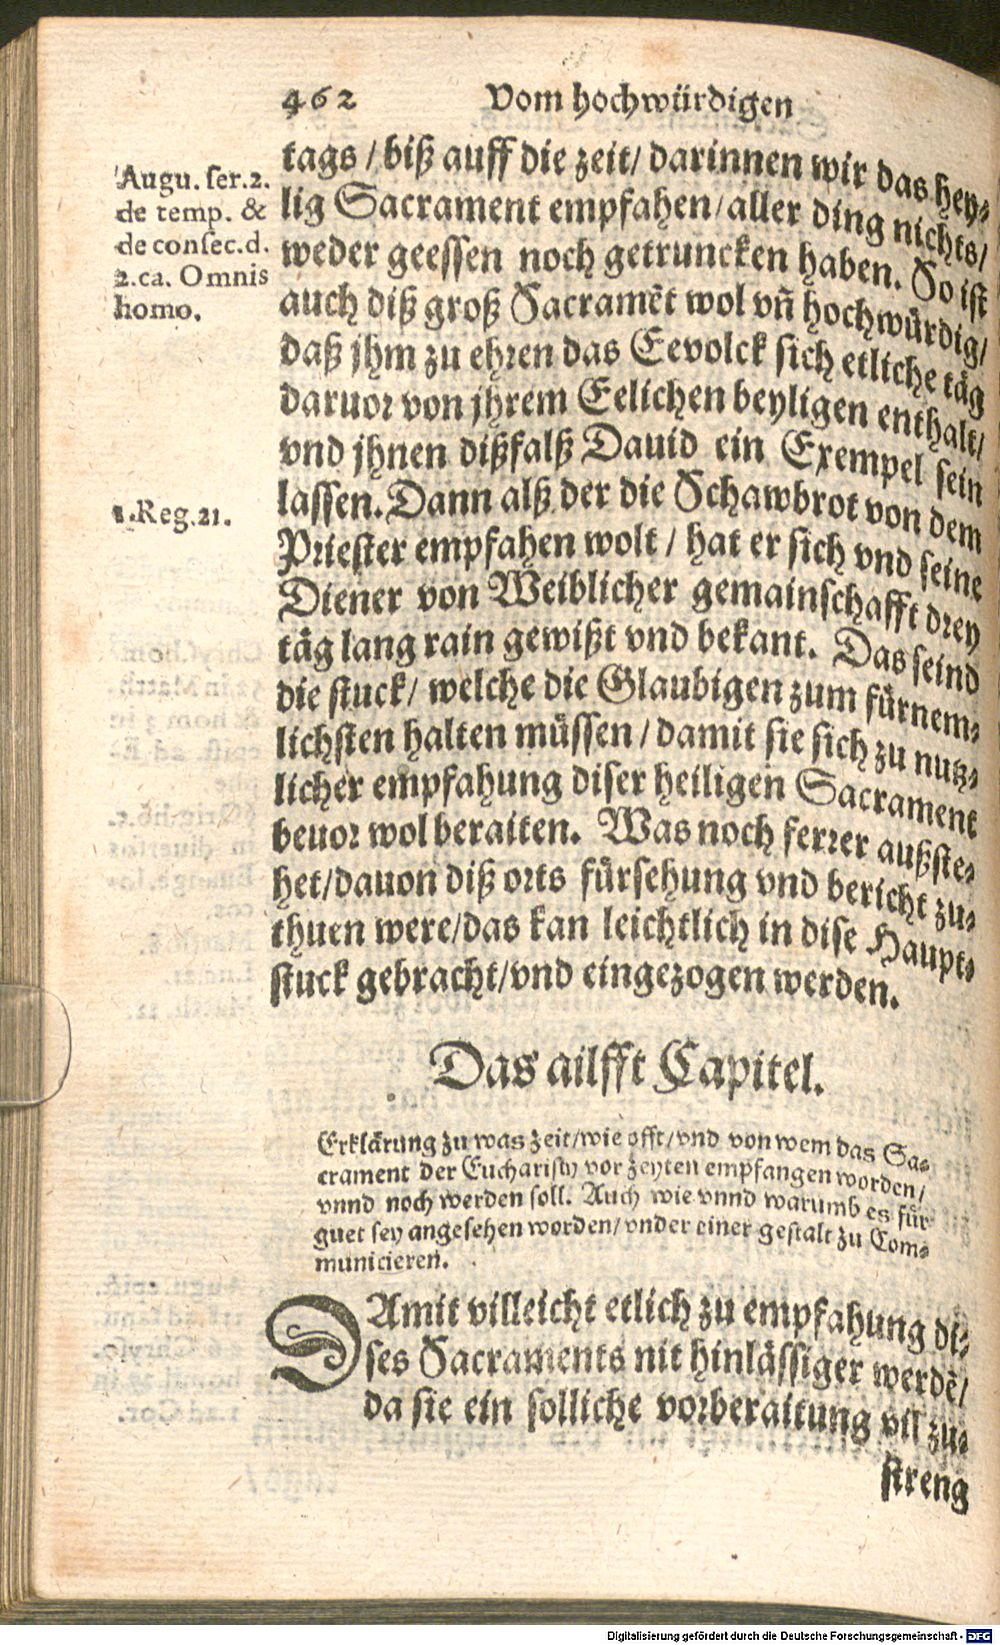 462 Vom hochwürdigen
tags / biß auff die zeit / darinnen wir das hey-
lig Sacrament empfahen / aller ding nichts /
weder geessen noch getruncken haben. So ist
auch diß groß Sacramēt wol vñ hochwürdig /
daß jhm zu ehren das Eevolck sich etliche täg
daruor von jhrem Eelichen beyligen enthalt /
vnd jhnen dißfalß Dauid ein Exempel sein
lassen. Dann alß der die Schawbrot von dem
Priester empfahen wolt / hat er sich vnd seine
Diener von Weiblicher gemainschafft drey
täg lang rain gewißt vnd bekant. Das seind
die stuck / welche die Glaubigen zum fürnem-
lichsten halten müssen / damit sie sich zu nutz-
licher empfahung diser heiligen Sacrament
beuor wol beraiten. Was noch ferrer außste-
het / dauon diß orts fürsehung vnd bericht zu-
thuen were / das kan leichtlich in dise Haupt-
stuck gebracht / vnd eingezogen werden.
Augu. ser. 2.
de temp. &
de consec. d.
2. ca. Omnis
homo.
1. Reg. 21.
Das ailfft Capitel.
Erklärung zu was zeit / wie offt / vnd von wem das Sa-
crament der Eucharisty vor zeyten empfangen worden /
vnnd noch werden soll. Auch wie vnnd warumb es für
guet sey angesehen worden / vnder einer gestalt zu Com-
municieren.
DAmit villeicht etlich zu empfahung di-
ses Sacraments nit hinlässiger werdē /
da sie ein solliche vorberaitung vil zu-
streng
Digitalisierung gefördert durch die Deutsche Forschungsgemeinschaft - DFG